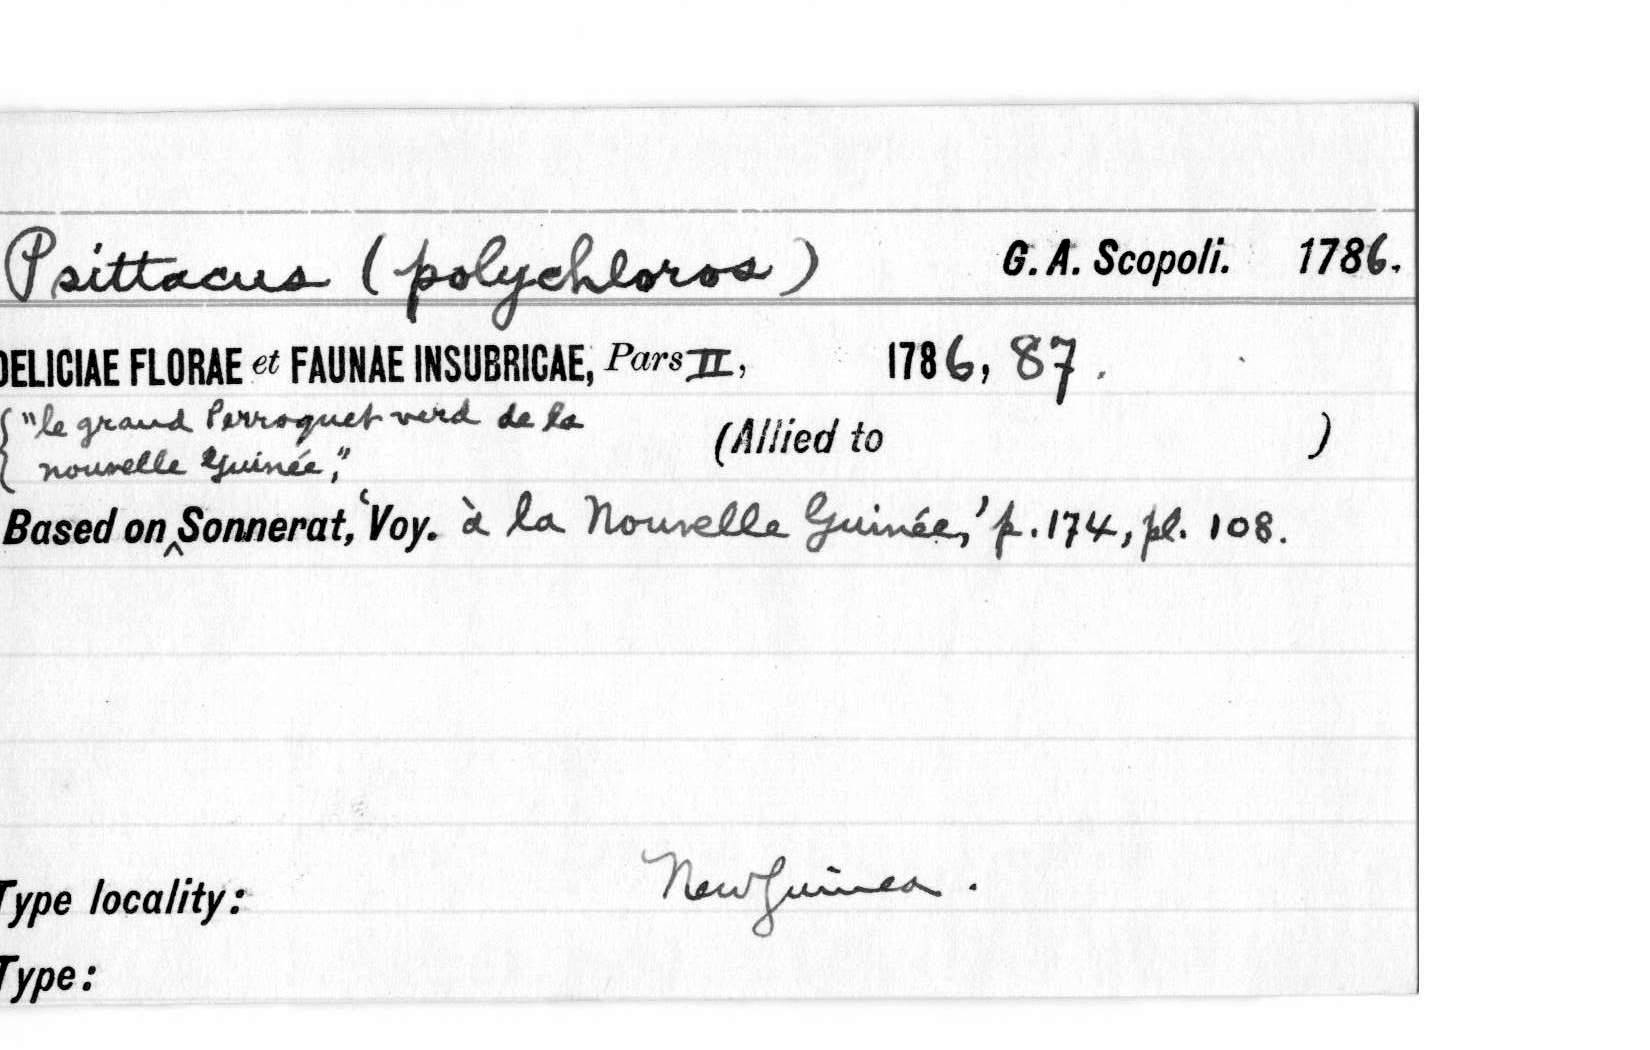 Psittacus (polychloros) G. A. Scopoli. 1786.
DELICIAE FLORAE et FAUNAE INSUBRICAE, Pars II, 1786, 87.
{"le grand Perroquet verd de la
nouvelle Guinée," (Allied to )
Based on ^ Sonnerat, 'Voy. à la Nouvelle Guinée,' p. 174, pl. 108.
Type locality: New Guinea.
Type: